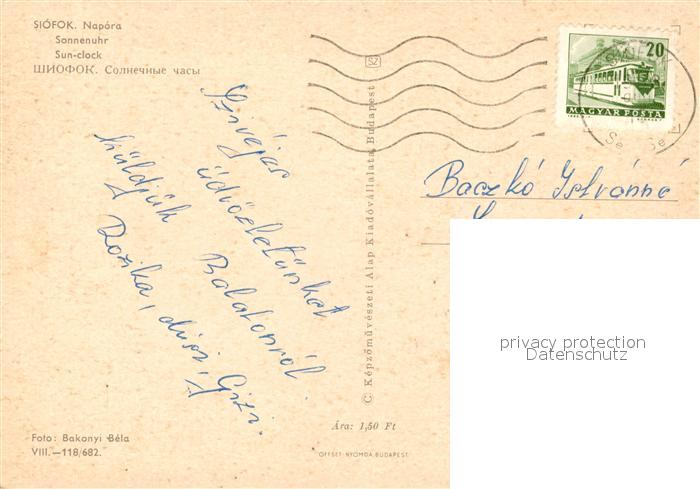 SIÓFOK. Napóra
Sonnenuhr
Sun-clock
ШИОФОК. Солнечные часы
SZ
20
MAGYAR POSTA
Szívéjas
üdvözletünket
küldjük Balatonról
Rozika, dusi, Gizi.
© Képzőművészeti Alap Kiadóvállalata, Budapest
Baczkó Istvánné
privacy protection
Datenschutz
Foto: Bakonyi Béla
VIII.—118/682.
Ára: 1,50 Ft
OFFSET-NYOMDA, BUDAPEST